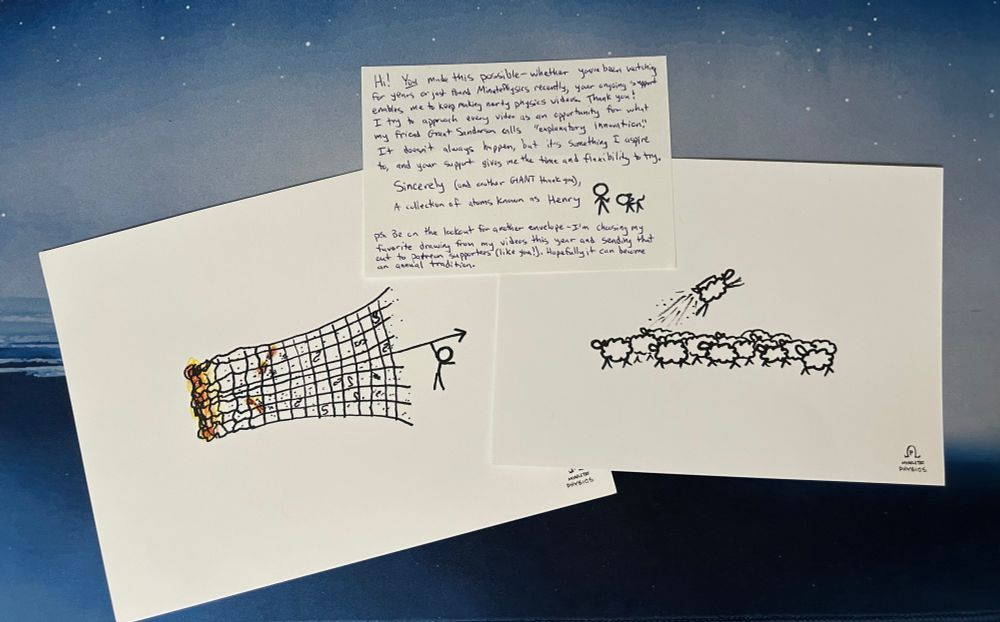 Hi! You made this possible – whether you've been watching
for years or just found MinutePhysics recently, your ongoing support
enables me to keep making nerdy physics videos. Thank you!
I try to approach every video as an opportunity for what
my friend Grant Sanderson calls "explanatory innovation."
It doesn't always happen, but it's something I aspire
to, and your support gives me the time and flexibility to try.
Sincerely (and another GIANT thank you),
A collection of atoms known as Henry
ps. Be on the lookout for another envelope – I'm choosing my
favorite drawing from my videos this year and sending that
out to Patreon supporters (like you!). Hopefully it can become
an annual tradition.
MINUTE
PHYSICS
MINUTE
PHYSICS